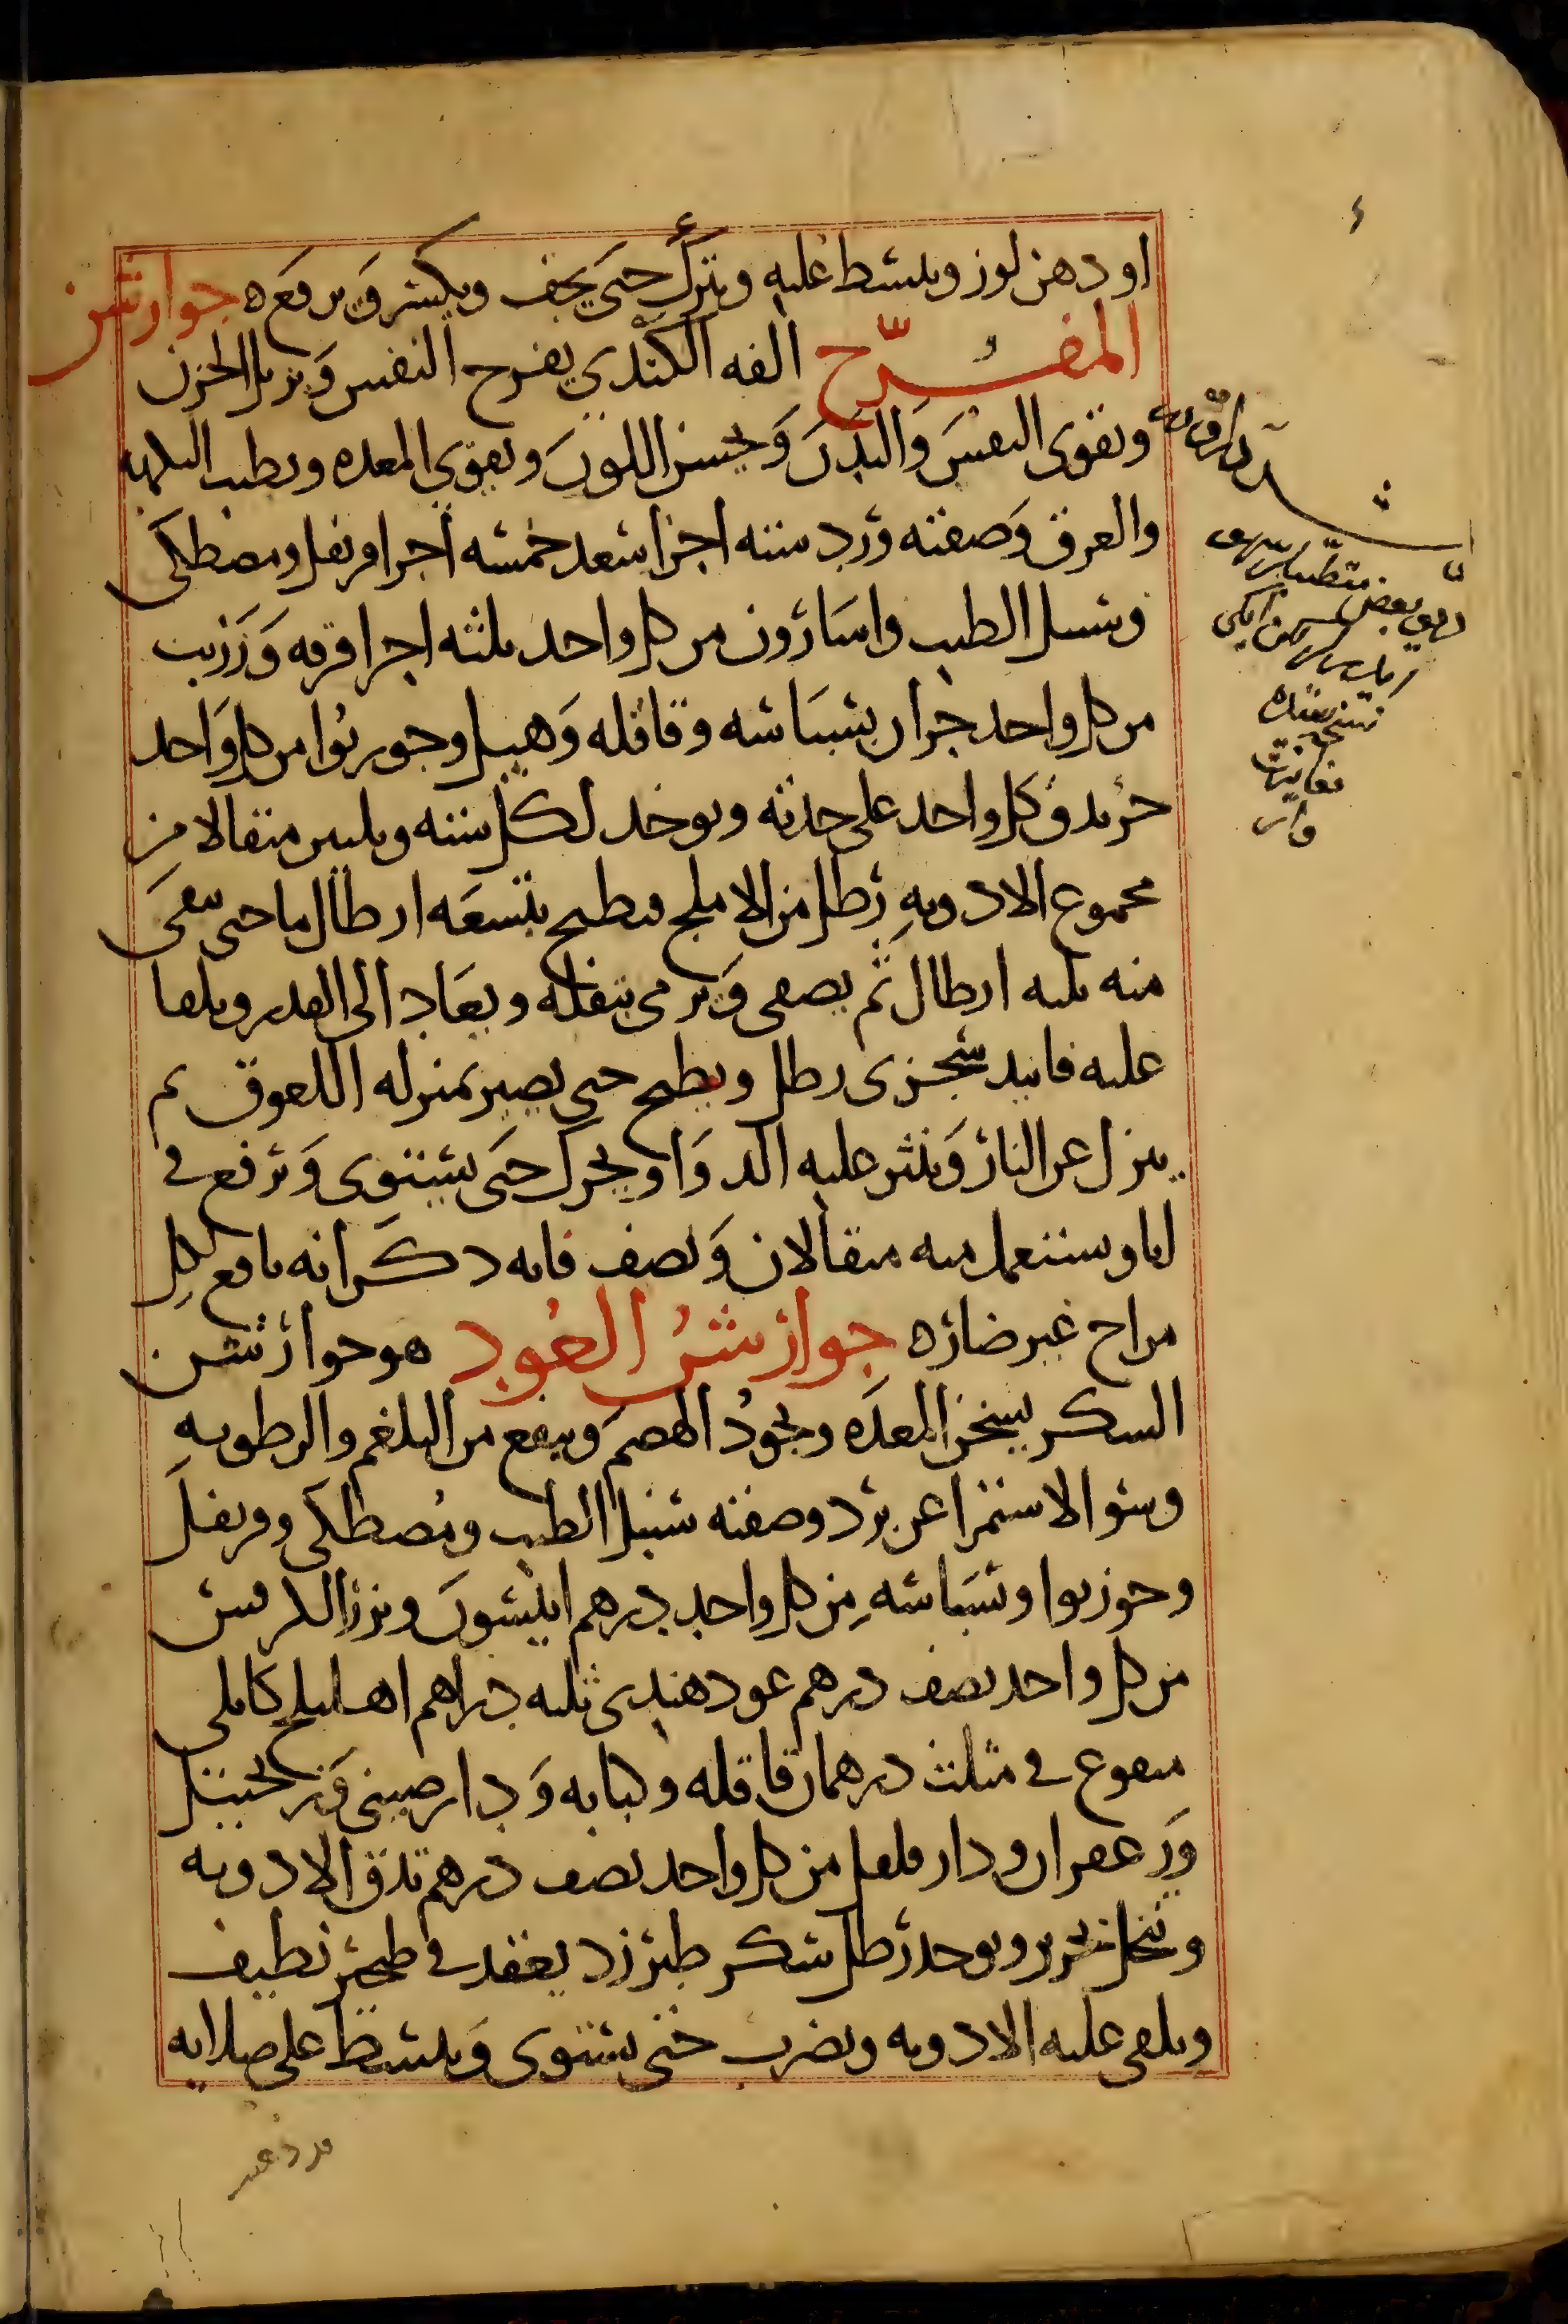 او دهن لوز ويبسط عليه ويترك حتى يجف ويكسر ويرفع ه جوارشن
المفرّح الفه الكندي يفرح النفس ويزيل الحزن
ويقوى النفس والبدن ويحسن اللون ويقوي المعده ويطيب النكهه
والعرق وصفته ورد سته اجزا سعد خمسه اجزا قرنفل ومصطكى
وسنبل الطيب واسارون من كل واحد ثلثه اجزا قرفه وزرنب
من كل واحد جزان بسباسه وقاقله وهيل وجوربوا من كل واحد
جز يدق كل واحد على حدته ويوخد لكل سته وثلثين مثقالا من
مجموع الادويه رطل من الاملج فيطبخ بتسعه ارطال ما حتى يبقى
منه ثلثه ارطال ثم يصفى ويرمى بثفله ويعاد الى القدر ويلقا
عليه فانيد سجزى رطل ويطبخ حتى يصير بمنزله اللعوق ثم
ينزل عن النار وينثر عليه الدوا ويحرك حتى يستوى ويرفع في
انا ويستعمل منه مثقالان ونصف فانه ذكر انه نافع لكل
مزاج غير ضاره جوارشن العود هو جوارشن
السكر يسخن المعده ويجود الهضم وينفع من البلغم والرطوبه
وسو الاستمرا عن برد وصفته سنبل الطيب ومصطكى وقرنفل
وجوزبوا وبسباسه من كل واحد درهم انيسون وبزر الكرفس
من كل واحد نصف درهم عود هندى ثلثه دراهم اهليلج كابلى
منقوع في مثلث درهمان قاقله وكبابه ودارصينى وزنجبيل
وزعفران ودارفلفل من كل واحد نصف درهم تدق الادويه
وتنخل بحرير ويوخد رطل سكر طبرزد يعقد في طنجير نظيف
ويلقى عليه الادويه ويضرب حتى يستوى ويبسط على صلايه